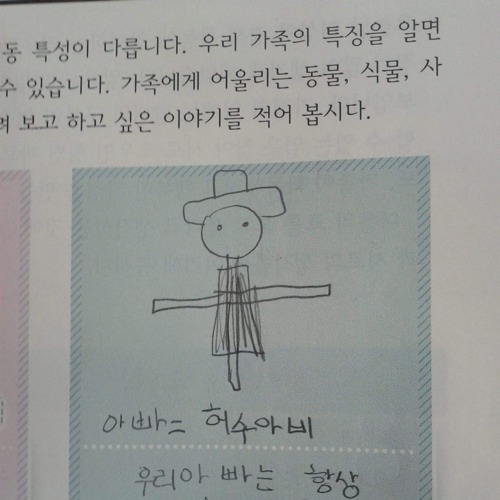 동 특성이 다릅니다. 우리 가족의 특징을 알면
수 있습니다. 가족에게 어울리는 동물, 식물, 사
려 보고 하고 싶은 이야기를 적어 봅시다.
아빠= 허수아비
우리아빠는 항상